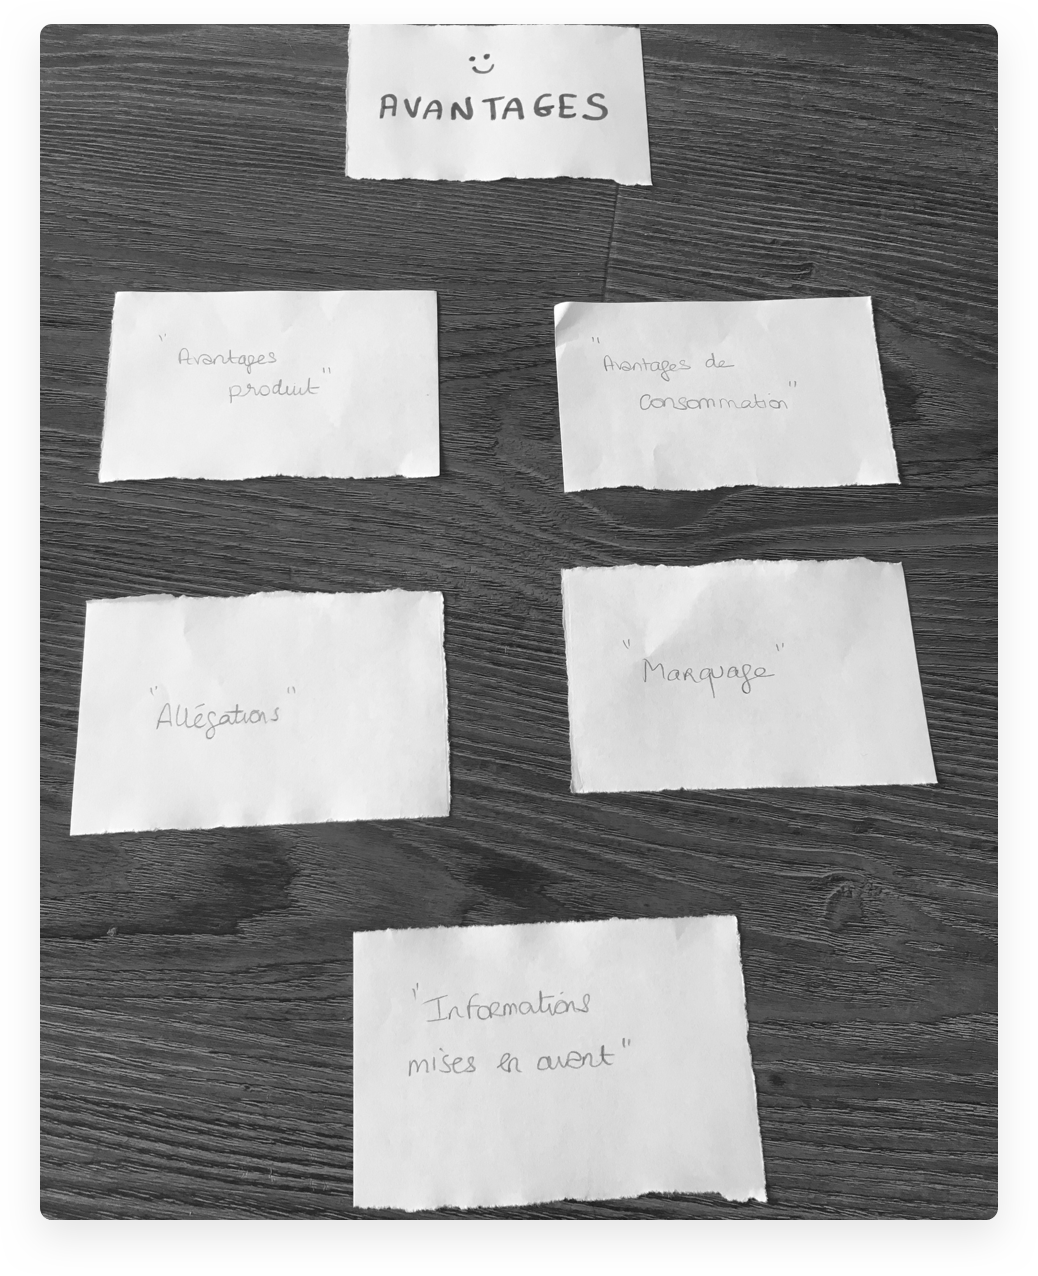 AVANTAGES
"Avantages
produit"
"Avantages de
Consommation"
"Allégations"
"Marquage"
"Informations
mises en avant"